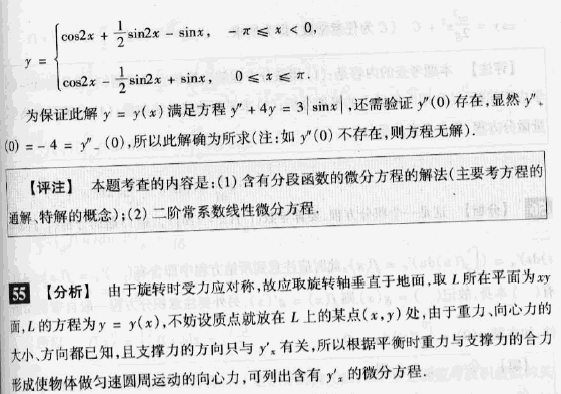 y = { cos2x + 1/2 sin2x − sinx, −π ⩽ x < 0,
cos2x − 1/2 sin2x + sinx, 0 ⩽ x ⩽ π.
为保证此解 y = y(x) 满足方程 y″ + 4y = 3|sinx|,还需验证 y″(0) 存在,显然 y″₊
(0) = − 4 = y″₋(0),所以此解确为所求(注:如 y″(0) 不存在,则方程无解).
【评注】 本题考查的内容是:(1) 含有分段函数的微分方程的解法(主要考方程的
通解、特解的概念);(2) 二阶常系数线性微分方程.
55 【分析】 由于旋转时受力应对称,故应取旋转轴垂直于地面,取 L 所在平面为 xy
面,L 的方程为 y = y(x),不妨设质点就放在 L 上的某点(x,y) 处,由于重力、向心力的
大小、方向都已知,且支撑力的方向只与 y′ₓ 有关,所以根据平衡时重力与支撑力的合力
形成使物体做匀速圆周运动的向心力,可列出含有 y′ₓ 的微分方程.